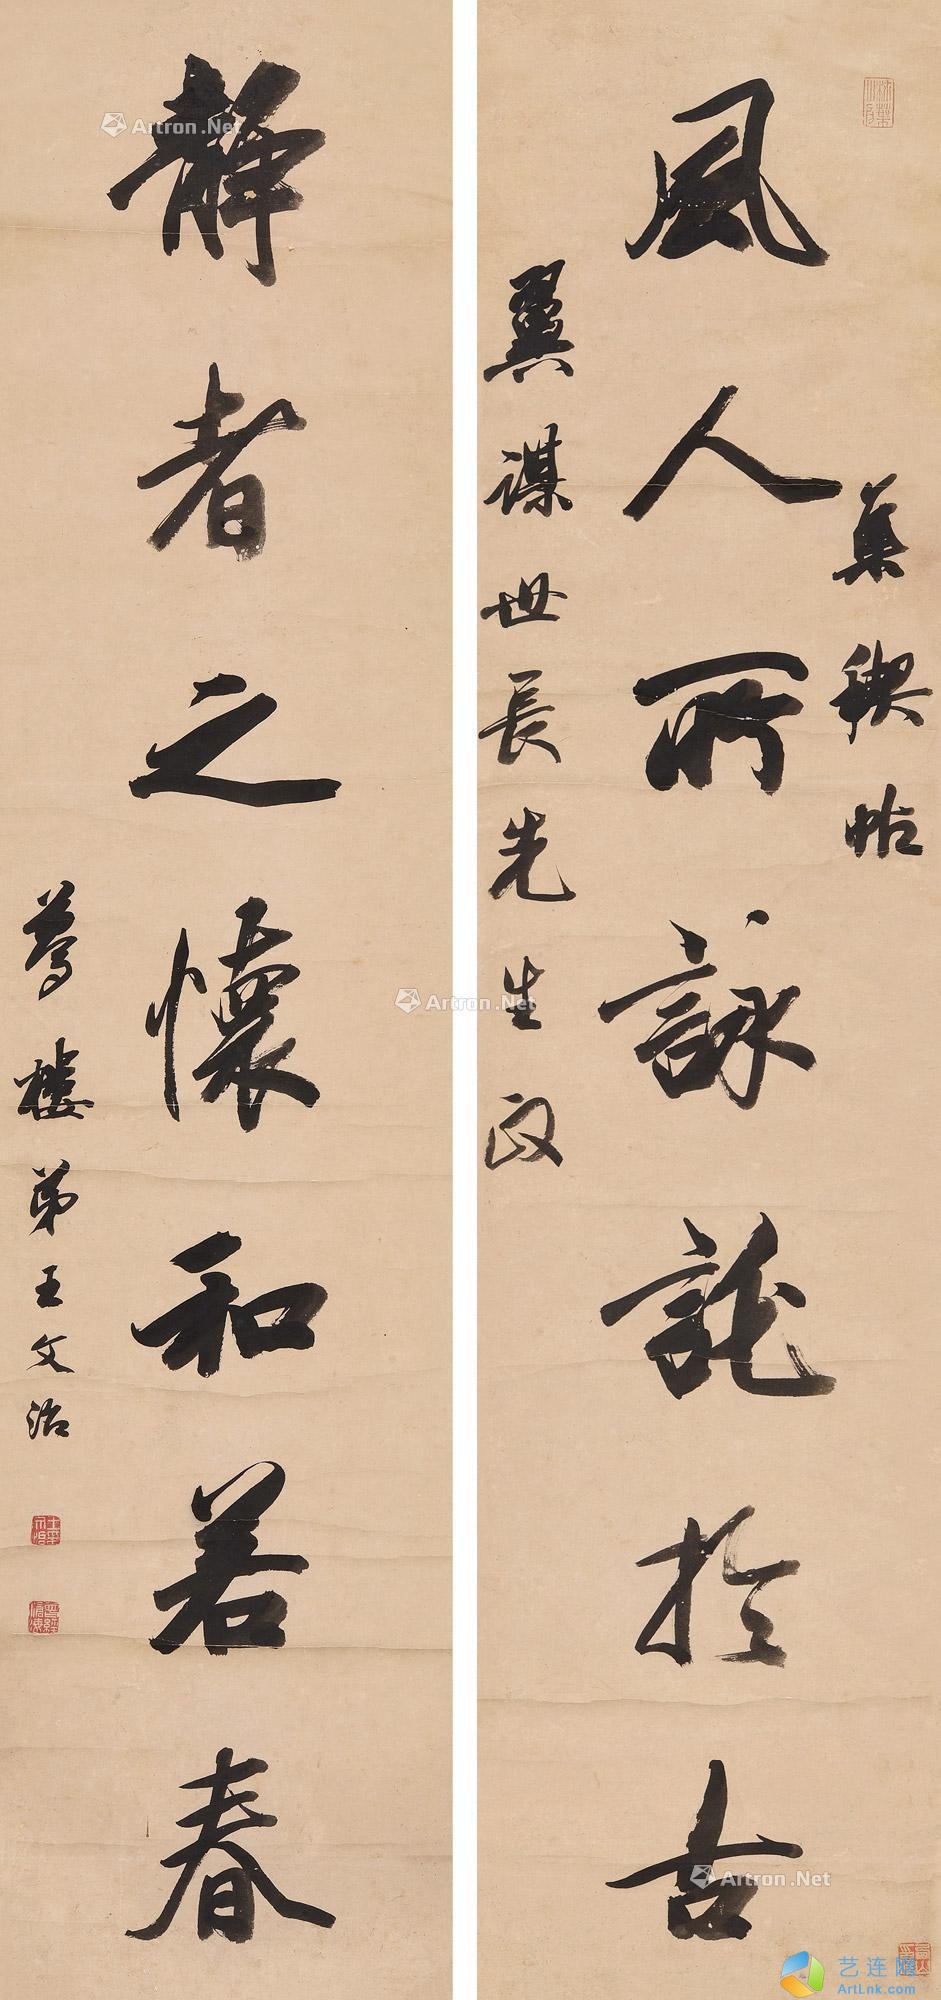 集禊帖
風人所詠託於古
翼謀世長先生政
靜者之懷和若春
夢樓弟王文治
Artron.Net
Artron.Net
Artron.Net
艺连隆
ArtLnk.com